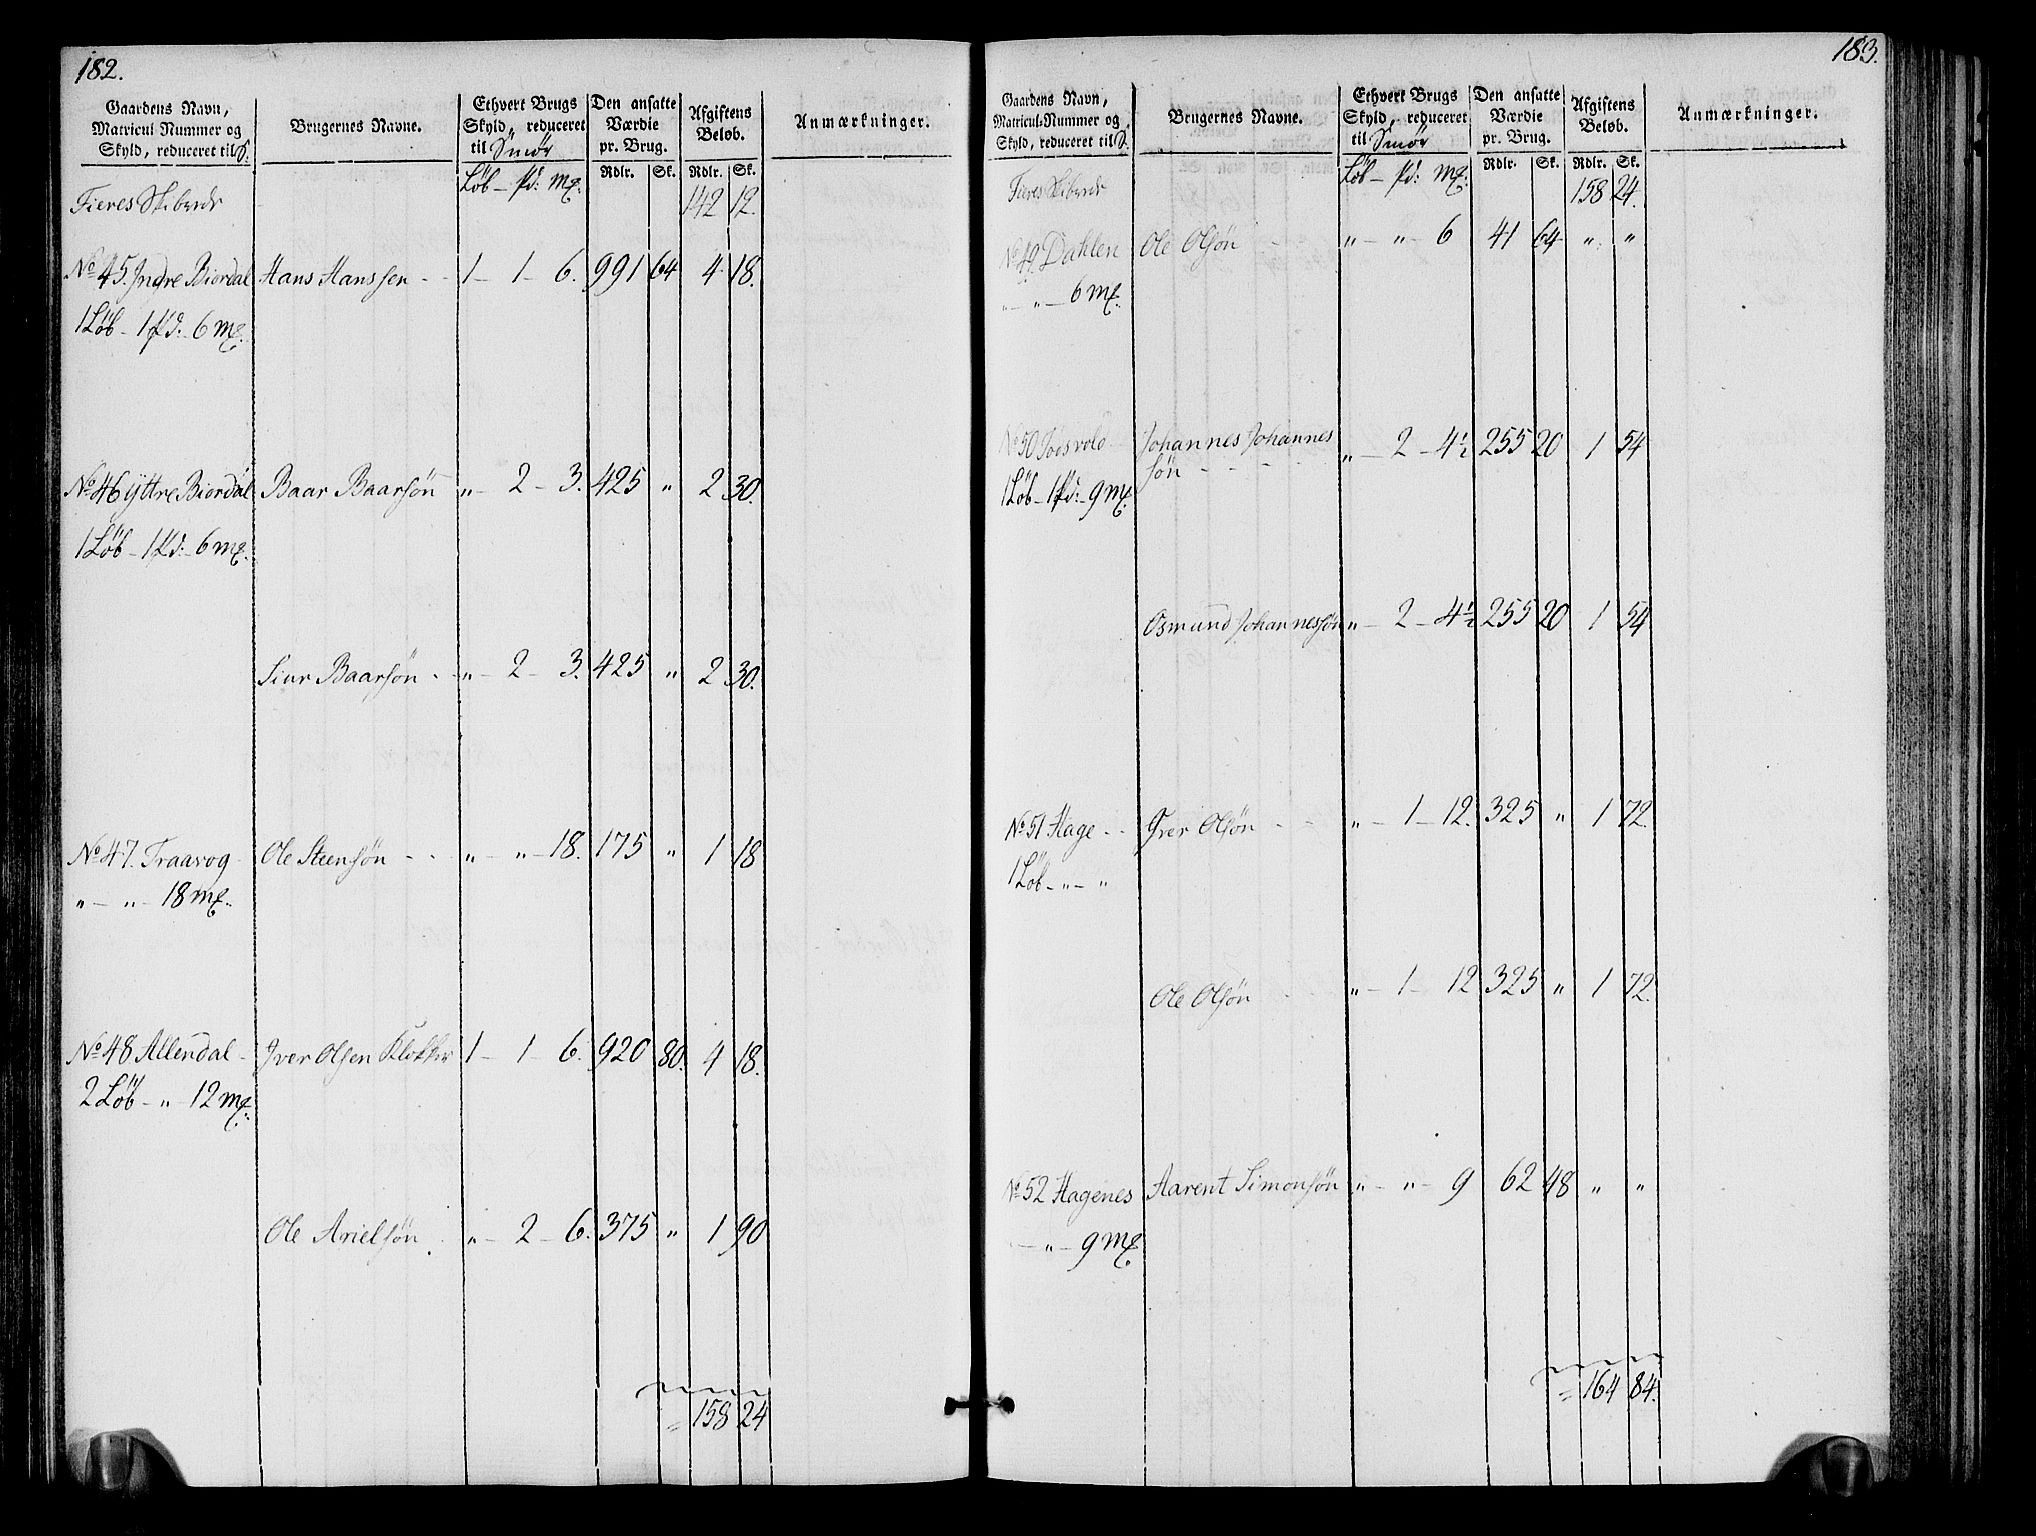 182.
Gaardens Navn, Matricul-Nummer og Skyld, reduceret til S. | Brugernes Navne. | Ethvert Brugs Skyld, reduceret til Smör | Den ansatte Værdie pr. Brug. | Afgiftens Beløb. | Anmærkninger.
Löb – Pd: Mk: | Rdlr. | Sk. | Rdlr. | Sk.
Fieres Skibrede 142 12.
No 45. Indre Biordal Hans Hanssen - - 1 – 1 – 6. 991 64 4 18.
1 Löb – 1 Pd: – 6 Mk:
No 46 Yttre Biordal Baar Baarsön „ – 2 – 3. 425 „ 2 30.
1 Löb – 1 Pd: – 6 Mk:
Siur Baarsön - „ – 2 – 3. 425 „ 2 30.
No 47. Traavog - Ole Steensön - - „ – „ – 18. 175 „ 1 18
„ – „ – 18 Mk:
No 48 Allendal - Iver Olsen Klokker 1 – 1 – 6. 920 80. 4 18.
2 Löb – „ 12 Mk:
Ole Arielsön „ – 2 – 6. 375 „ 1 90
= 158 24
183.
Gaardens Navn, Matricul-Nummer og Skyld, reduceret til S. | Brugernes Navne. | Ethvert Brugs Skyld, reduceret til Smör | Den ansatte Værdie pr. Brug. | Afgiftens Beløb. | Anmærkninger.
Löb – Pd: Mk: | Rdlr. | Sk. | Rdlr. | Sk.
Fieres Skibrede 158 24.
No 49. Dahlen Ole Olsön - „ – „ – 6 41 64 „ „
„ – „ – 6 Mk:
No 50 Johannes Johannes „ – 2 – 4½ 255 20 1 54
sön - - - -
1 Löb – 1 Pd: – 9 Mk:
Osmund Johannessön „ – 2 – 4½ 255 20 1 54
No 51 Hage - - Iver Olsön - - „ – 1 – 12. 325 „ 1 72.
1 Löb – „ – „
Ole Olsön - - „ – 1 – 12 325 „ 1 72.
No 52 Hagenes Aarent Simonsön „ – „ – 9 62 48 „ „
– „ – 9 Mk:
= 164 84.